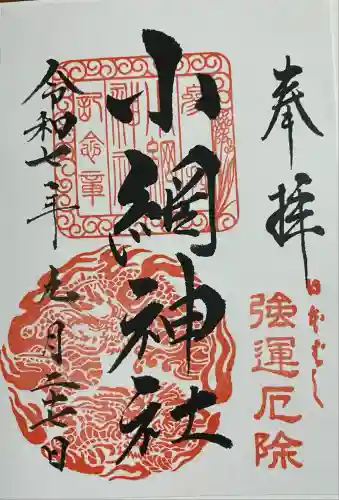 奉拝
強運厄除
小網神社
令和七年九月二十七日